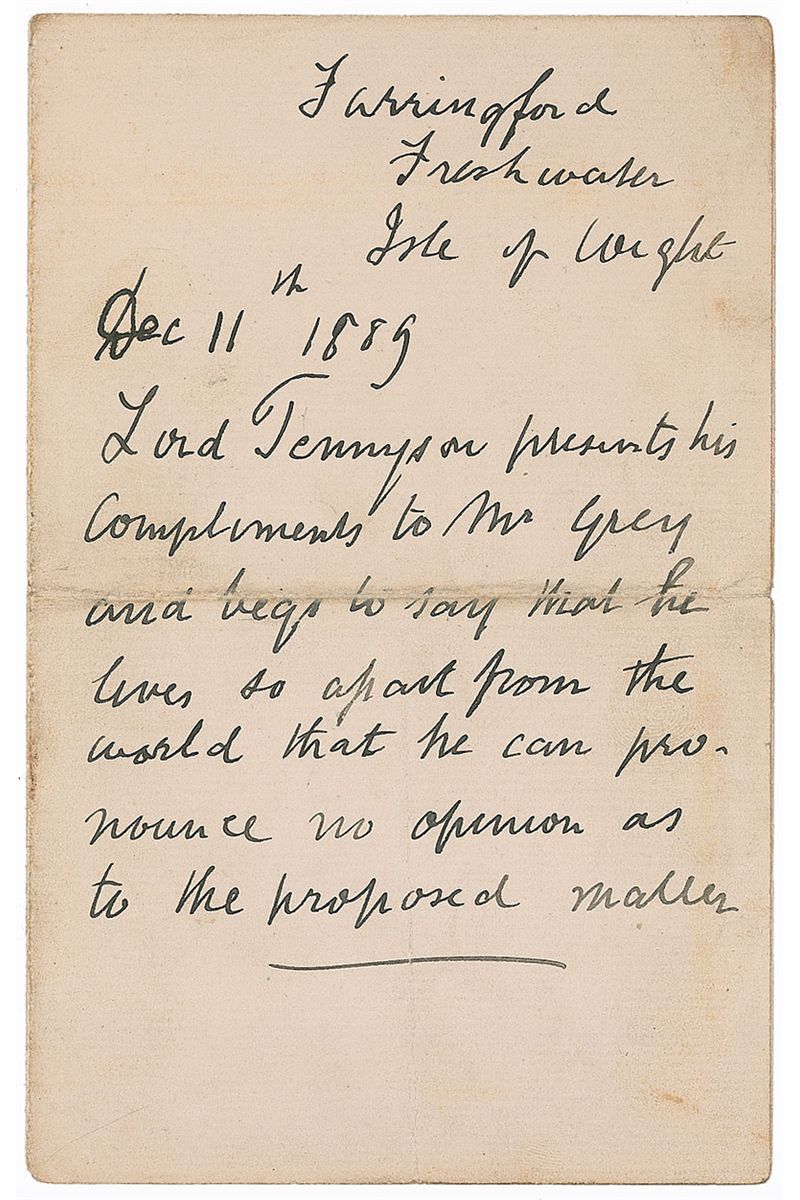 Farringford
Freshwater
Isle of Wight
Dec 11th 1889
Lord Tennyson presents his
Compliments to Mr Grey
and begs to say that he
lives so apart from the
world that he can pro-
nounce no opinion as
to the proposed matter